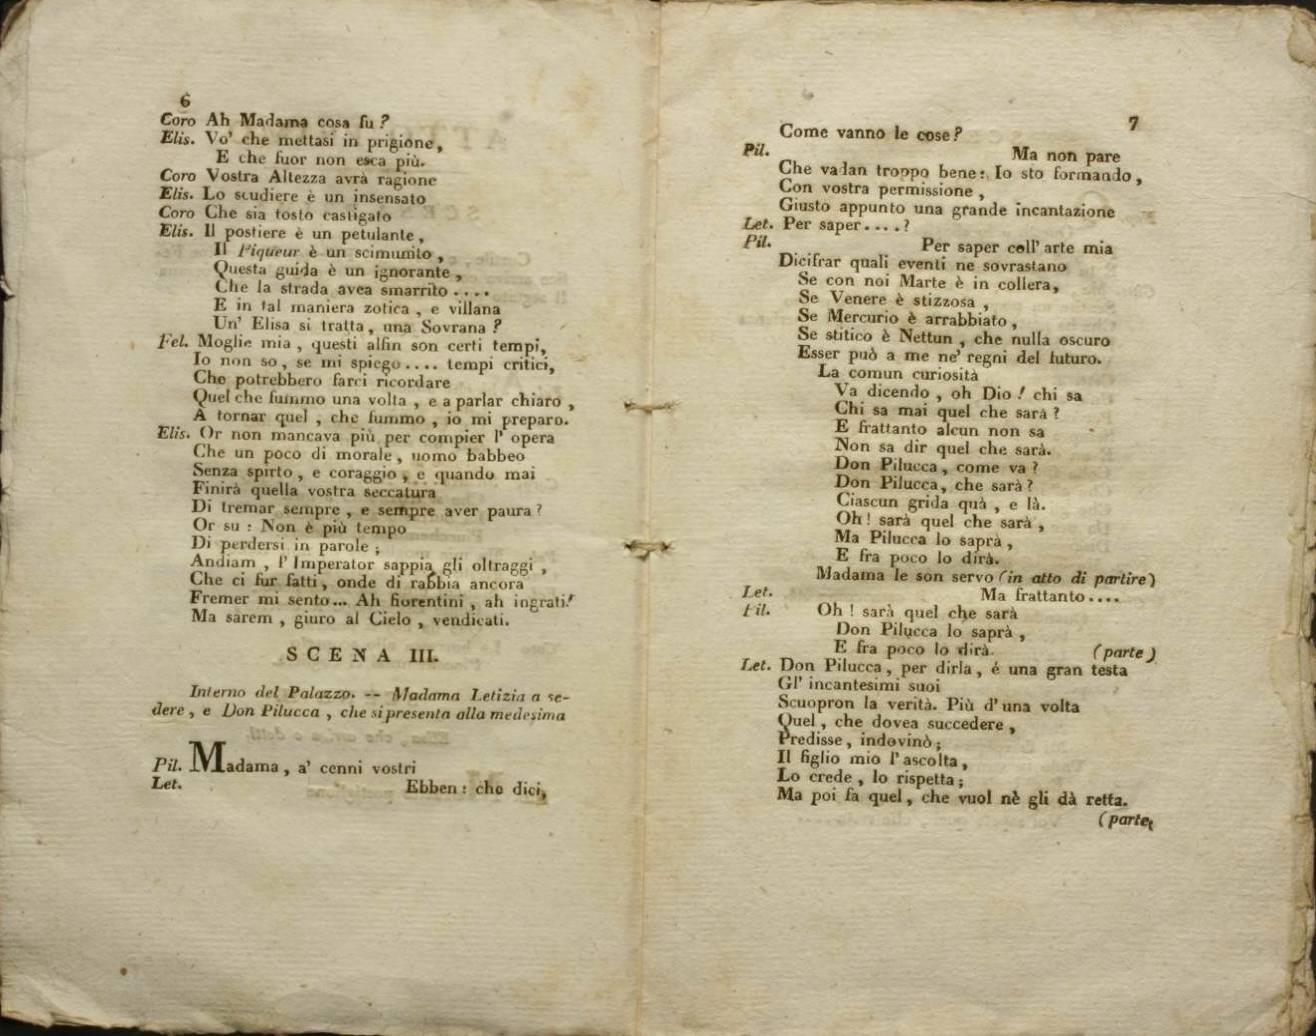 6
Coro Ah Madama cosa fu?
Elis. Vo' che mettasi in prigione,
E che fuor non esca più.
Coro Vostra Altezza avrà ragione
Elis. Lo scudiere è un insensato
Coro Che sia tosto castigato
Elis. Il postiere è un petulante,
Il Piqueur è un scimunito,
Questa guida è un ignorante,
Che la strada avea smarrito....
E in tal maniera zotica, e villana
Un' Elisa si tratta, una Sovrana?
Fel. Moglie mia, questi alfin son certi tempi,
Io non so, se mi spiego.... tempi critici,
Che potrebbero farci ricordare
Quel che fummo una volta, e a parlar chiaro,
A tornar quel, che fummo, io mi preparo.
Elis. Or non mancava più per compier l' opera
Che un poco di morale, uomo babbeo
Senza spirto, e coraggio, e quando mai
Finirà quella vostra seccatura
Di tremar sempre, e sempre aver paura?
Or su: Non è più tempo
Di perdersi in parole;
Andiam, l' Imperator sappia gli oltraggi,
Che ci fur fatti, onde di rabbia ancora
Fremer mi sento... Ah fiorentini, ah ingrati!
Ma sarem, giuro al Cielo, vendicati.
SCENA III.
Interno del Palazzo. -- Madama Letizia a se-
dere, e Don Pilucca, che si presenta alla medesima
Pil. Madama, a' cenni vostri
Let. Ebben: che dici,
7
Come vanno le cose?
Pil. Ma non pare
Che vadan troppo bene: Io sto formando,
Con vostra permissione,
Giusto appunto una grande incantazione
Let. Per saper....?
Pil. Per saper coll' arte mia
Dicifrar quali eventi ne sovrastano
Se con noi Marte è in collera,
Se Venere è stizzosa,
Se Mercurio è arrabbiato,
Se stitico è Nettun, che nulla oscuro
Esser può a me ne' regni del futuro.
La comun curiosità
Va dicendo, oh Dio! chi sa
Chi sa mai quel che sarà?
E frattanto alcun non sa
Non sa dir quel che sarà.
Don Pilucca, come va?
Don Pilucca, che sarà?
Ciascun grida quà, e là.
Oh! sarà quel che sarà,
Ma Pilucca lo saprà,
E fra poco lo dirà.
Madama le son servo (in atto di partire)
Let. Ma frattanto....
Pil. Oh! sarà quel che sarà
Don Pilucca lo saprà,
E fra poco lo dirà. (parte)
Let. Don Pilucca, per dirla, é una gran testa
Gl' incantesimi suoi
Scuopron la verità. Più d' una volta
Quel, che dovea succedere,
Predisse, indovinò;
Il figlio mio l' ascolta,
Lo crede, lo rispetta;
Ma poi fa quel, che vuol nè gli dà retta.
(parte